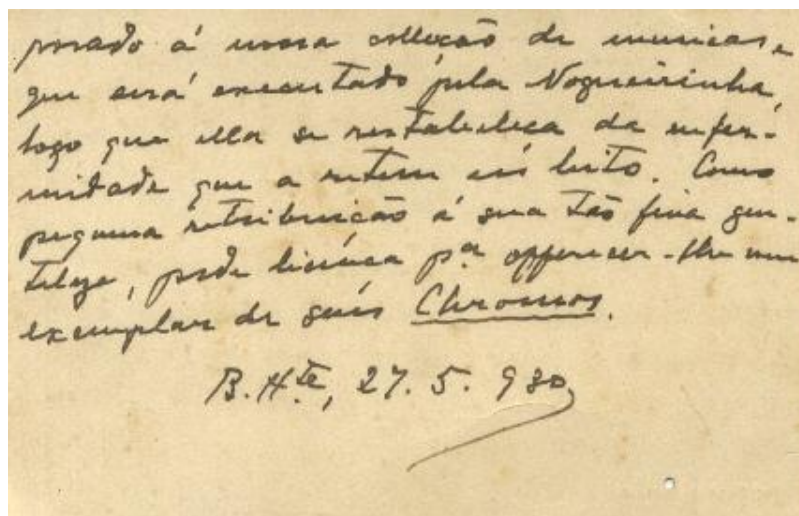 porado á nossa collecção de musicas, e
que será executado pela Nogueirinha,
logo que ella se restabeleça da enfer-
midade que a retem no leito. Como
pequena retribuição á sua tão fina gen-
tileza, pede licença pª offerecer-lhe um
exemplar de seus Chromos.
B. Hte, 27. 5. 930